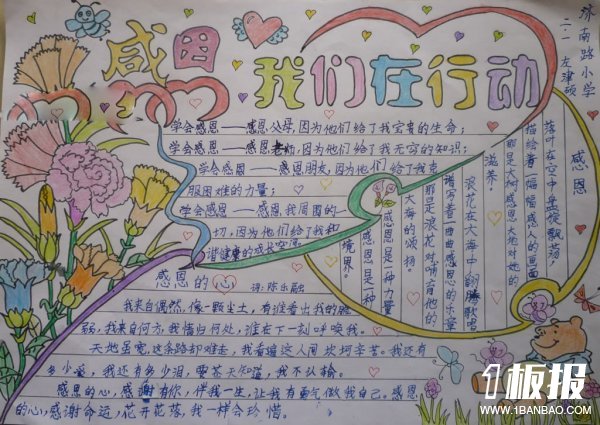 感恩
我们在行动
济南路小学
二·一
左津硕
学会感恩——感恩父母,因为他们给了我宝贵的生命;
学会感恩——感恩老师,因为他们给了我无穷的知识;
学会感恩——感恩朋友,因为他们给了我克
服困难的力量;
学会感恩——感恩我周围的一
切,因为他们给了我和
谐健康的成长空间
感恩
落叶在空中盘旋飘荡,
描绘着一幅幅感人的画面
那是大树感恩大地对她的
滋养;
浪花在大海中翻腾歌唱
谱写着一曲曲感恩的乐章
那是浪花对哺育他的
大海的颂扬。
感恩是一种力量
感恩是一种
境界。
感恩的心
词:陈乐融
我来自偶然,像一颗尘土,有谁看出我的脆
弱,我来自何方,我情归何处,谁在下一刻呼唤我。
天地虽宽,这条路却难走,我看遍这人间坎坷辛苦。我还有
多少爱,我还有多少泪,要苍天知道,我不认输。
感恩的心,感谢有你,伴我一生,让我有勇气做我自己。感恩
的心,感谢命运,花开花落,我一样会珍惜。
1板报
WWW.1BANBAO.COM